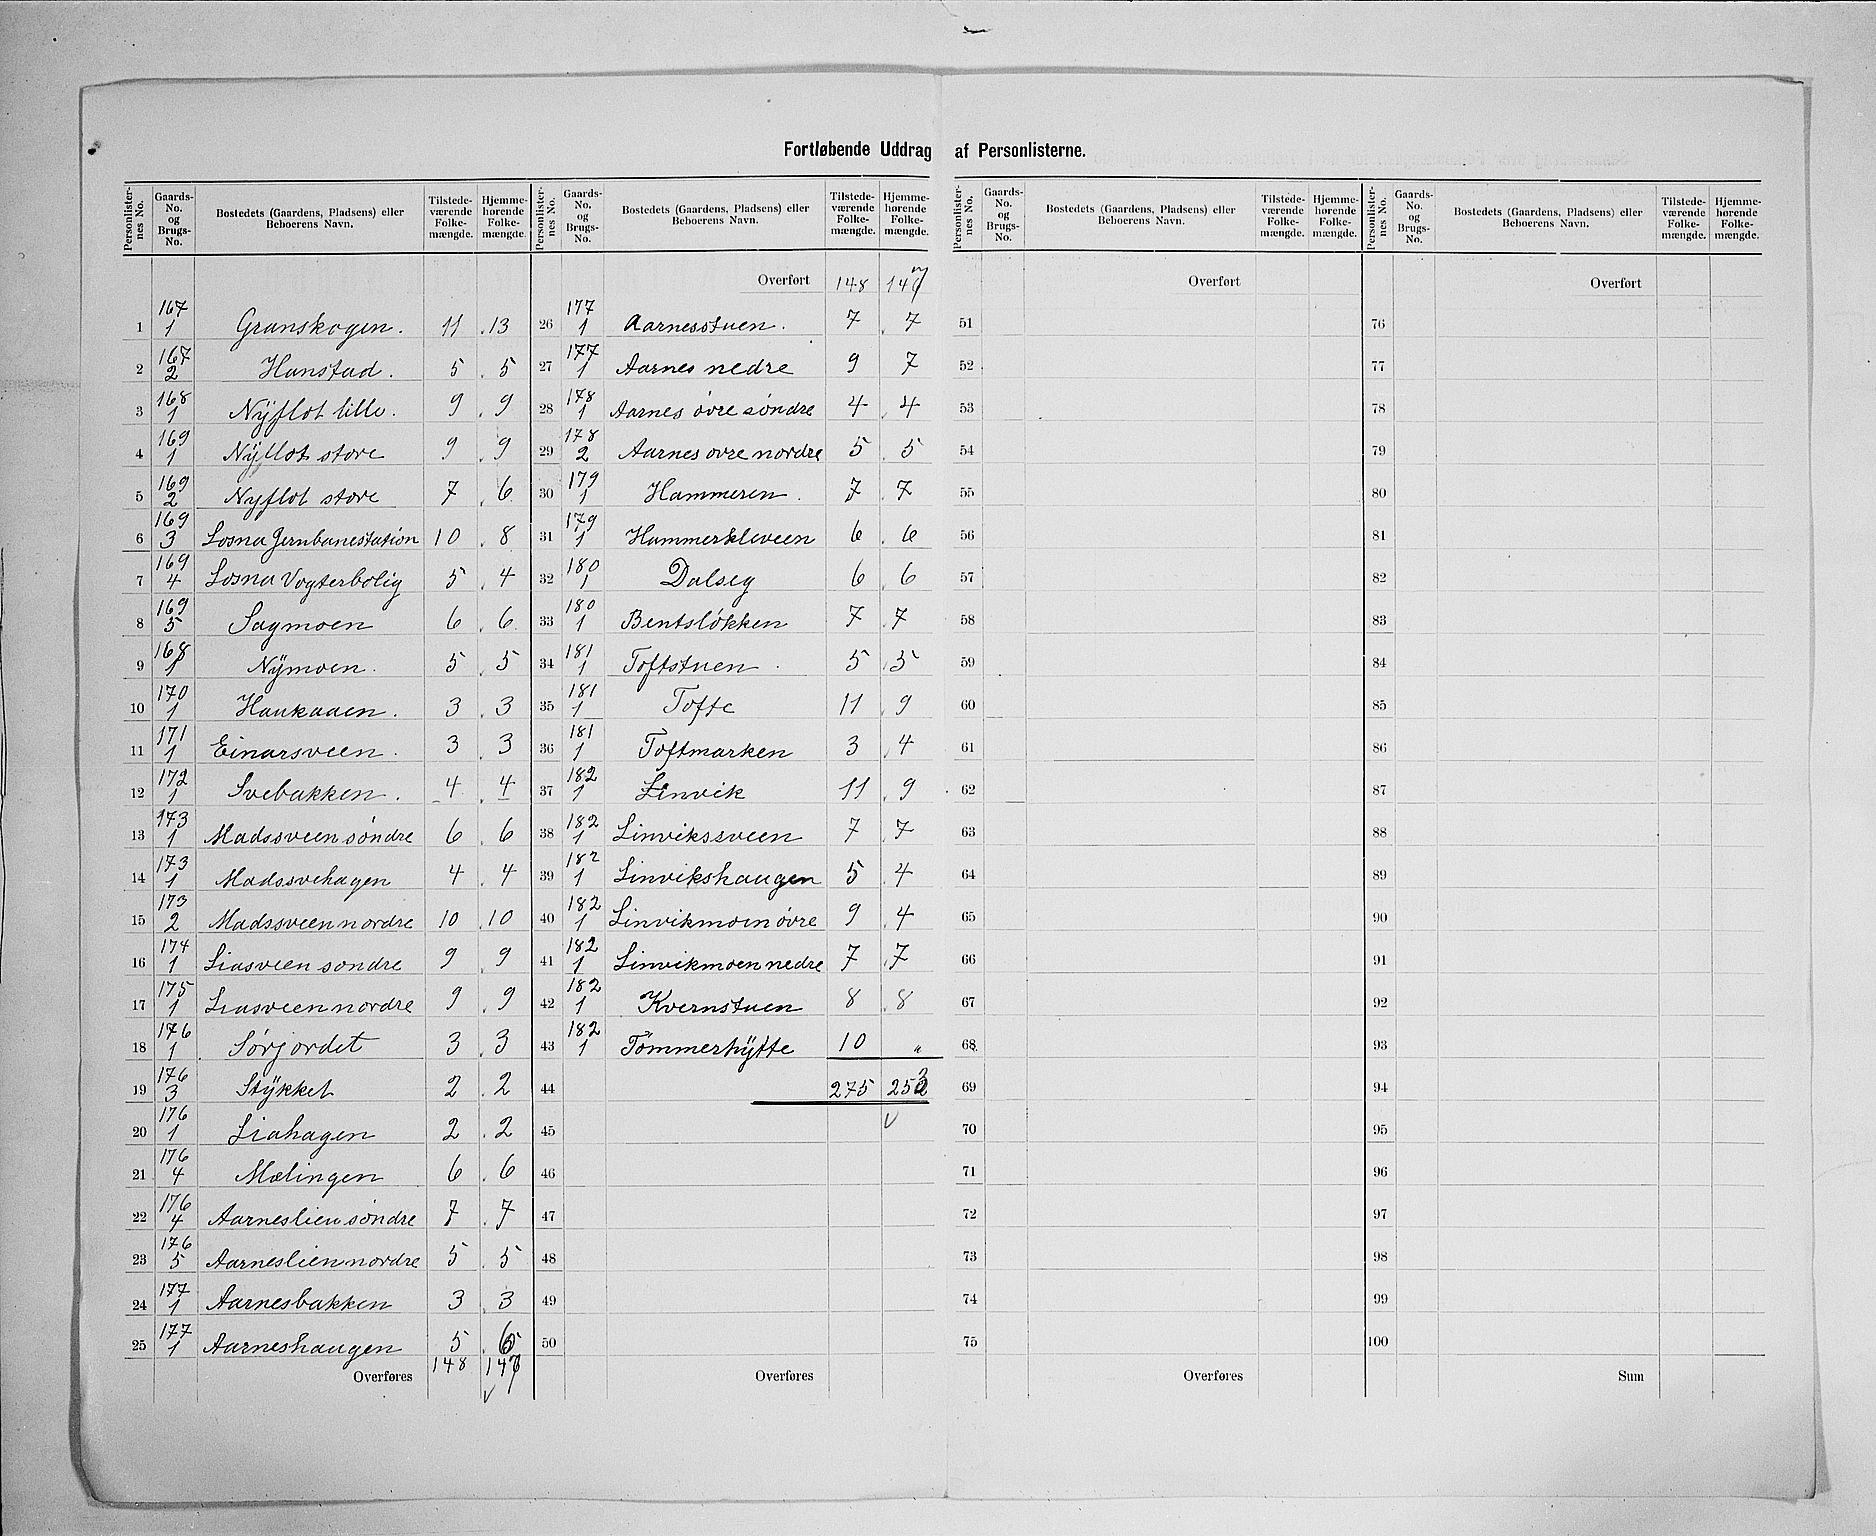 Fortløbende Uddrag af Personlisterne.
Personlisternes No. | Gaards-No. og Brugs-No. | Bostedets (Gaardens, Pladsens) eller Beboerens Navn. | Tilstedeværende Folkemængde. | Hjemmehørende Folkemængde.
1 | 167 1 | Granskogen. | 11 | 13
2 | 167 2 | Hanstad. | 5 | 5
3 | 168 1 | Nÿflot lille. | 9 | 9
4 | 169 1 | Nÿflot store | 9 | 9
5 | 169 2 | Nyflot store | 7 | 6
6 | 169 3 | Losna Jernbanestation | 10 | 8
7 | 169 4 | Losna Vogterbolig | 5 | 4
8 | 169 5 | Sagmoen | 6 | 6
9 | 168 1 | Nÿmoen. | 5 | 5
10 | 170 1 | Haukaaen. | 3 | 3
11 | 171 1 | Einarsveen. | 3 | 3
12 | 172 1 | Svebakken. | 4 | 4
13 | 173 1 | Madssveen søndre | 6 | 6
14 | 173 1 | Madssvehagen | 4 | 4
15 | 173 2 | Madssveen nordre | 10 | 10
16 | 174 1 | Liasveen sondre | 9 | 9
17 | 175 1 | Liasveen nordre | 9 | 9
18 | 176 1 | Sørjordet | 3 | 3
19 | 176 3 | Stÿkket | 2 | 2
20 | 176 1 | Liahagen | 2 | 2
21 | 176 4 | Mælingen | 6 | 6
22 | 176 4 | Aarneslien søndre | 7 | 7
23 | 176 5 | Aarneslien nordre | 5 | 5
24 | 177 1 | Aarnesbakken | 3 | 3
25 | 177 1 | Aarneshaugen | 5 | 6
Overføres | 148 | 147
Personlisternes No. | Gaards-No. og Brugs-No. | Bostedets (Gaardens, Pladsens) eller Beboerens Navn. | Tilstedeværende Folkemængde. | Hjemmehørende Folkemængde.
Overført | 148 | 147
26 | 177 1 | Aarnesstuen. | 7 | 7
27 | 177 1 | Aarnes nedre | 9 | 7
28 | 178 1 | Aarnes øvre søndre | 4 | 4
29 | 178 2 | Aarnes ovre nordre | 5 | 5
30 | 179 1 | Hammeren. | 7 | 7
31 | 179 1 | Hammerkleveen | 6 | 6
32 | 180 1 | Dalseg | 6 | 6
33 | 180 1 | Bentsløkken | 7 | 7
34 | 181 1 | Toftstuen. | 5 | 5
35 | 181 1 | Tofte | 11 | 9
36 | 181 1 | Toftmarken | 3 | 4
37 | 182 1 | Linvik | 11 | 9
38 | 182 1 | Linvikssveen | 7 | 7
39 | 182 1 | Linvikshaugen | 5 | 4
40 | 182 1 | Linvikmoen øvre | 9 | 4
41 | 182 1 | Linvikmoen nedre | 7 | 7
42 | 182 1 | Kvernstuen | 8 | 8
43 | 182 1 | Tömmerhÿtte | 10 | "
44 | 275 | 253
45
46
47
48
49
50
Overføres
Personlisternes No. | Gaards-No. og Brugs-No. | Bostedets (Gaardens, Pladsens) eller Beboerens Navn. | Tilstedeværende Folkemængde. | Hjemmehørende Folkemængde.
Overført
51
52
53
54
55
56
57
58
59
60
61
62
63
64
65
66
67
68
69
70
71
72
73
74
75
Overføres
Personlisternes No. | Gaards-No. og Brugs-No. | Bostedets (Gaardens, Pladsens) eller Beboerens Navn. | Tilstedeværende Folkemængde. | Hjemmehørende Folkemængde.
Overført
76
77
78
79
80
81
82
83
84
85
86
87
88
89
90
91
92
93
94
95
96
97
98
99
100
Sum